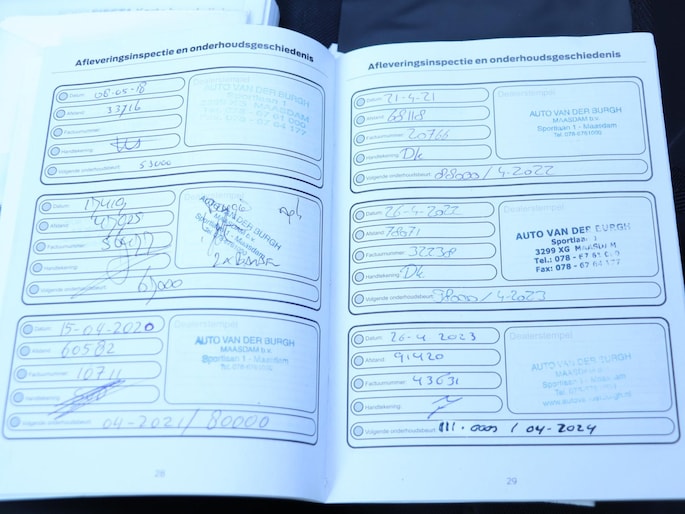 Afleveringsinspectie en onderhoudsgeschiedenis
Datum: 08-05-18
Afstand: 33716
Factuurnummer:
Handtekening:
Volgende onderhoudsbeurt: 53000
Dealerstempel
AUTO VAN DER BURGH
Sportlaan 1
MAASDAM
Datum:
Afstand:
Factuurnummer:
Handtekening:
Volgende onderhoudsbeurt:
AUTO VAN DER BURGH
MAASDAM b.v.
Sportlaan 1 - Maasdam
Datum: 15-04-2020
Afstand: 60582
Factuurnummer: 10711
Handtekening:
Volgende onderhoudsbeurt: 04-2021/80000
Dealerstempel
AUTO VAN DER BURGH
MAASDAM b.v.
Sportlaan 1 - Maasdam
28
Afleveringsinspectie en onderhoudsgeschiedenis
Datum: 21-4-21
Afstand: 68118
Factuurnummer: 20766
Handtekening: Dk
Volgende onderhoudsbeurt: 88000/4-2022
Dealerstempel
AUTO VAN DER BURGH
MAASDAM b.v.
Sportlaan 1 - Maasdam
Datum: 26-4-2022
Afstand: 78671
Factuurnummer: 32238
Handtekening: Dk
Volgende onderhoudsbeurt: 98000/4-2023
Dealerstempel
AUTO VAN DER BURGH
Sportlaan 1
3299 XG MAASDAM
Datum: 26-4 2023
Afstand: 91420
Factuurnummer: 43631
Handtekening:
Volgende onderhoudsbeurt: 111.000 / 04-2024
Dealerstempel
AUTO VAN DER BURGH
MAASDAM b.v.
Sportlaan 1 - Maasdam
29